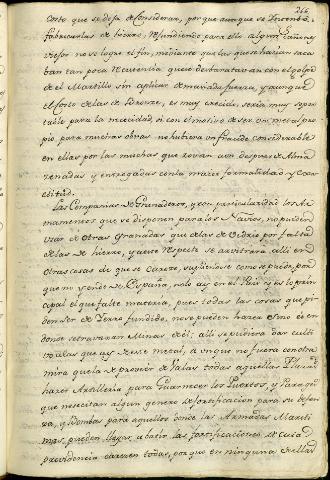 266
Costo que se dexa de Considerar, porque aunque se Intentó
fabricarlas de bronze, refundiendo para ello algun Cañones
viejos no se logró el fin, mediante que las que se hacian saca
ban tan poca resistencia que se desbarataban con el golpe
de el Martillo sin aplicar demasiada fuerza, y aunque
el Costo de las de Bronze, es muy crecido, seria muy sopor
table para la necesidad, si con el motivo de ser un metal pro
pio para muchas obras no hubiera un fraude considerable
en ellas por las muchas que roban aun despues de Alma
cenadas y entregadas con la maior formalidad y Exac
titud.
Las Compañias de Granaderos, y con particularidad los Ar
mamentos que se disponen para los Navios, no pueden
usar de otras Granadas que de las de Vidrio por falta
de las de hierro, y a este respecto se arbitrara alli en
otras cosas de que se carece, supliendose como se puede, por
que ni va de España, ni lo ay en el Pais y es lo prin
cipal el que falte materia, pues todas las cosas que pi
den ser de Fierro fundido, no se pueden hacer sino es en
donde se trabaxan Minas de el; alli se pudiera dar culti
vo a las que ay de este metal, aunque no fuera con otra
mira que la de proveer de Valas todas aquellas Plazas
hazer Artilleria para Guarnecer los Puertos, y Parages
que nesecitan algun genero de fortificacion para su defen
sa, y Bombas para aquellos donde las Armadas Mariti
mas, pueden llegar, a batir las fortificaciones de cuia
providencia carecen todas, porque en ninguna se hallan